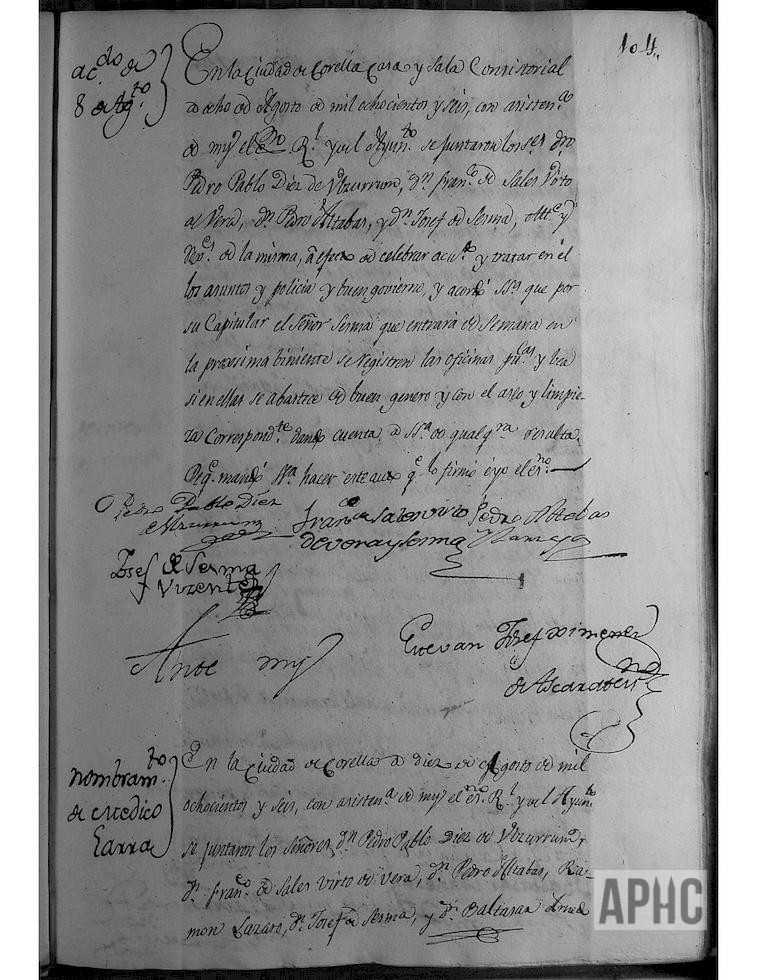 104.
acdo. de
8 de Agto.
En la Ciudad de Corella Casa y Sala Consistorial
a ocho de Agosto de mil ochocientos y seis, con asistena.
de my el Esno. Rl. y del Ayunto. se juntaron los Ses. dn.
Pedro Pablo Diez de Ulzurrum, dn. Franco. de Sales Virto
de Vera, dn. Pedro Altabas, y dn. Josef de Sesma, Alce. y
Rexes. de la misma, a efecto de celebrar acdo. y tratar en el
los asuntos y policia y buen govierno, y acordó Sa. que por
su Capitular el Señor Sesma que entrará de Semana en
la proxsima biniente se registren las oficinas pucas. y bea
si en ellas se abastece de buen genero y con el aseo y limpie-
za Correspondte. dando cuenta a Sa. de qualqra. resulta.
Y mandó Sa. hacer este auto qe. lo firmó é yo el esno.
Pedro Pablo Diez
Ulzurrum
Franco. de Sales Virto
de Vera y Sesma
Pedro Altabas
Josef de Sesma
y Vizente
Ante my
Estevan Josef Ximenez
de Ascarate
Nombramto.
de Medico
Garra
En la Ciudad de Corella a diez de Agosto de mil
ochocientos y seis, con asistena. de my el esno. Rl. y del Ayunto.
se juntaron los Señores dn. Pedro Pablo Diez de Ulzurrum,
dn. Franco. de Sales Virto de Vera, dn. Pedro Altabas, Ra-
mon Lazaro, dn. Josef de Sesma, y dn. Baltasar
APHC